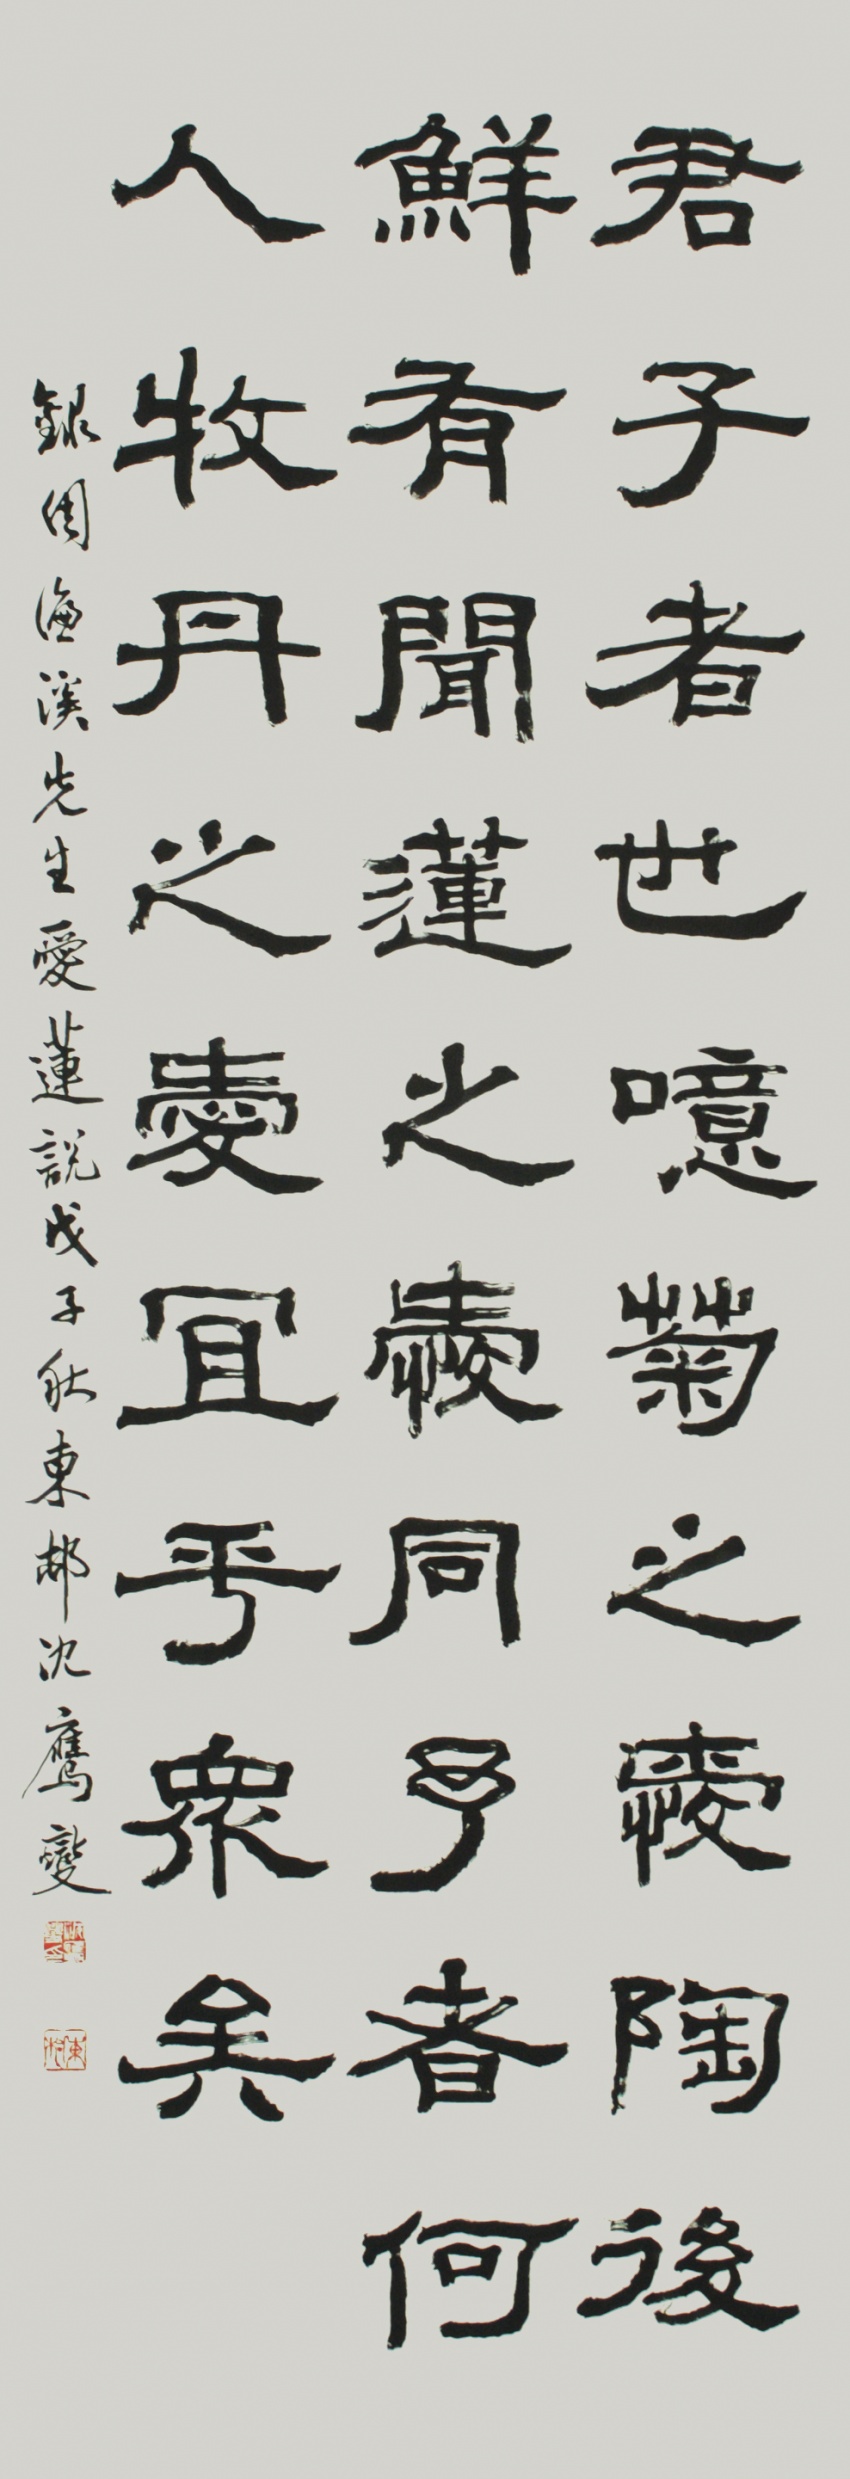 君子者也噫菊之愛陶後
鮮有聞蓮之愛同予者何
人牧丹之愛宜乎衆矣
録周濂溪先生愛蓮説戊子秋東邨沈鷹燮